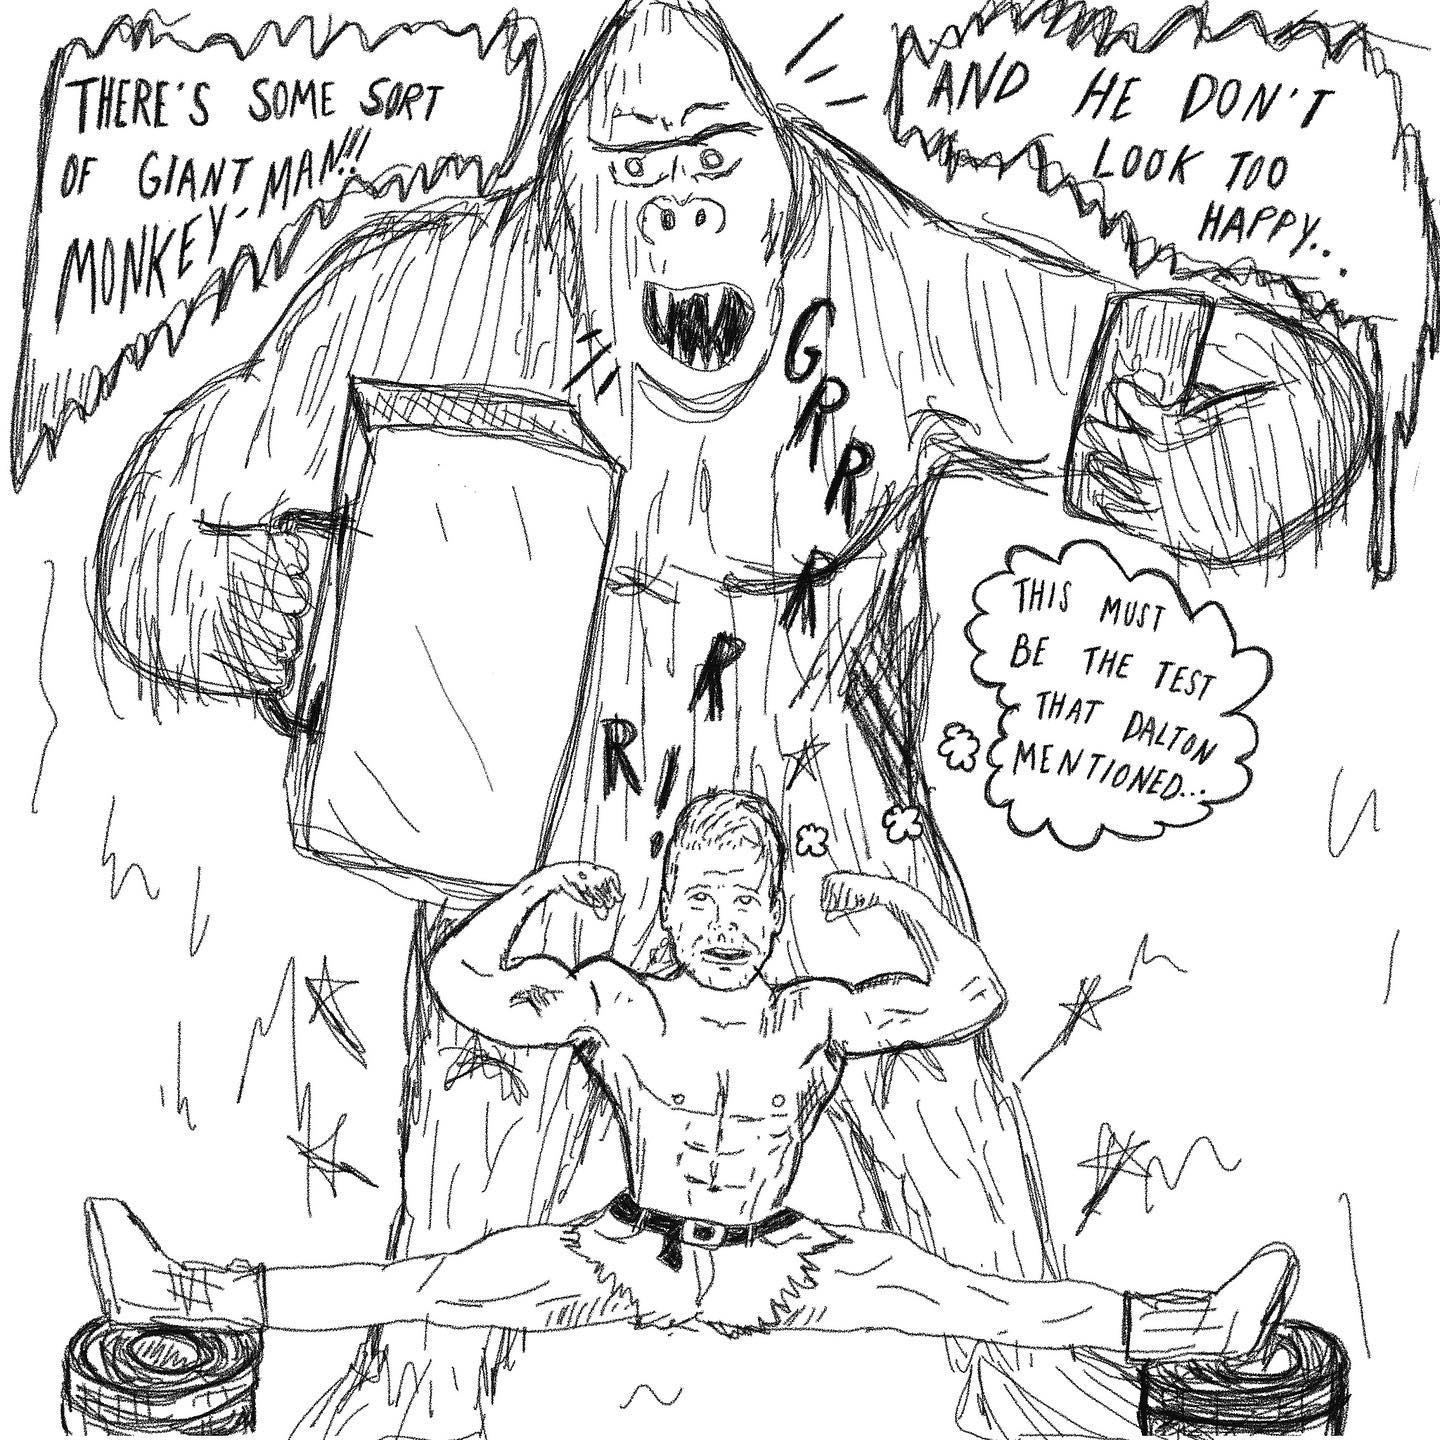 THERE'S SOME SORT
OF GIANT MAN!!
MONKEY-
AND HE DON'T
LOOK TOO
HAPPY..
GRRRRR!
THIS MUST
BE THE TEST
THAT DALTON
MENTIONED...